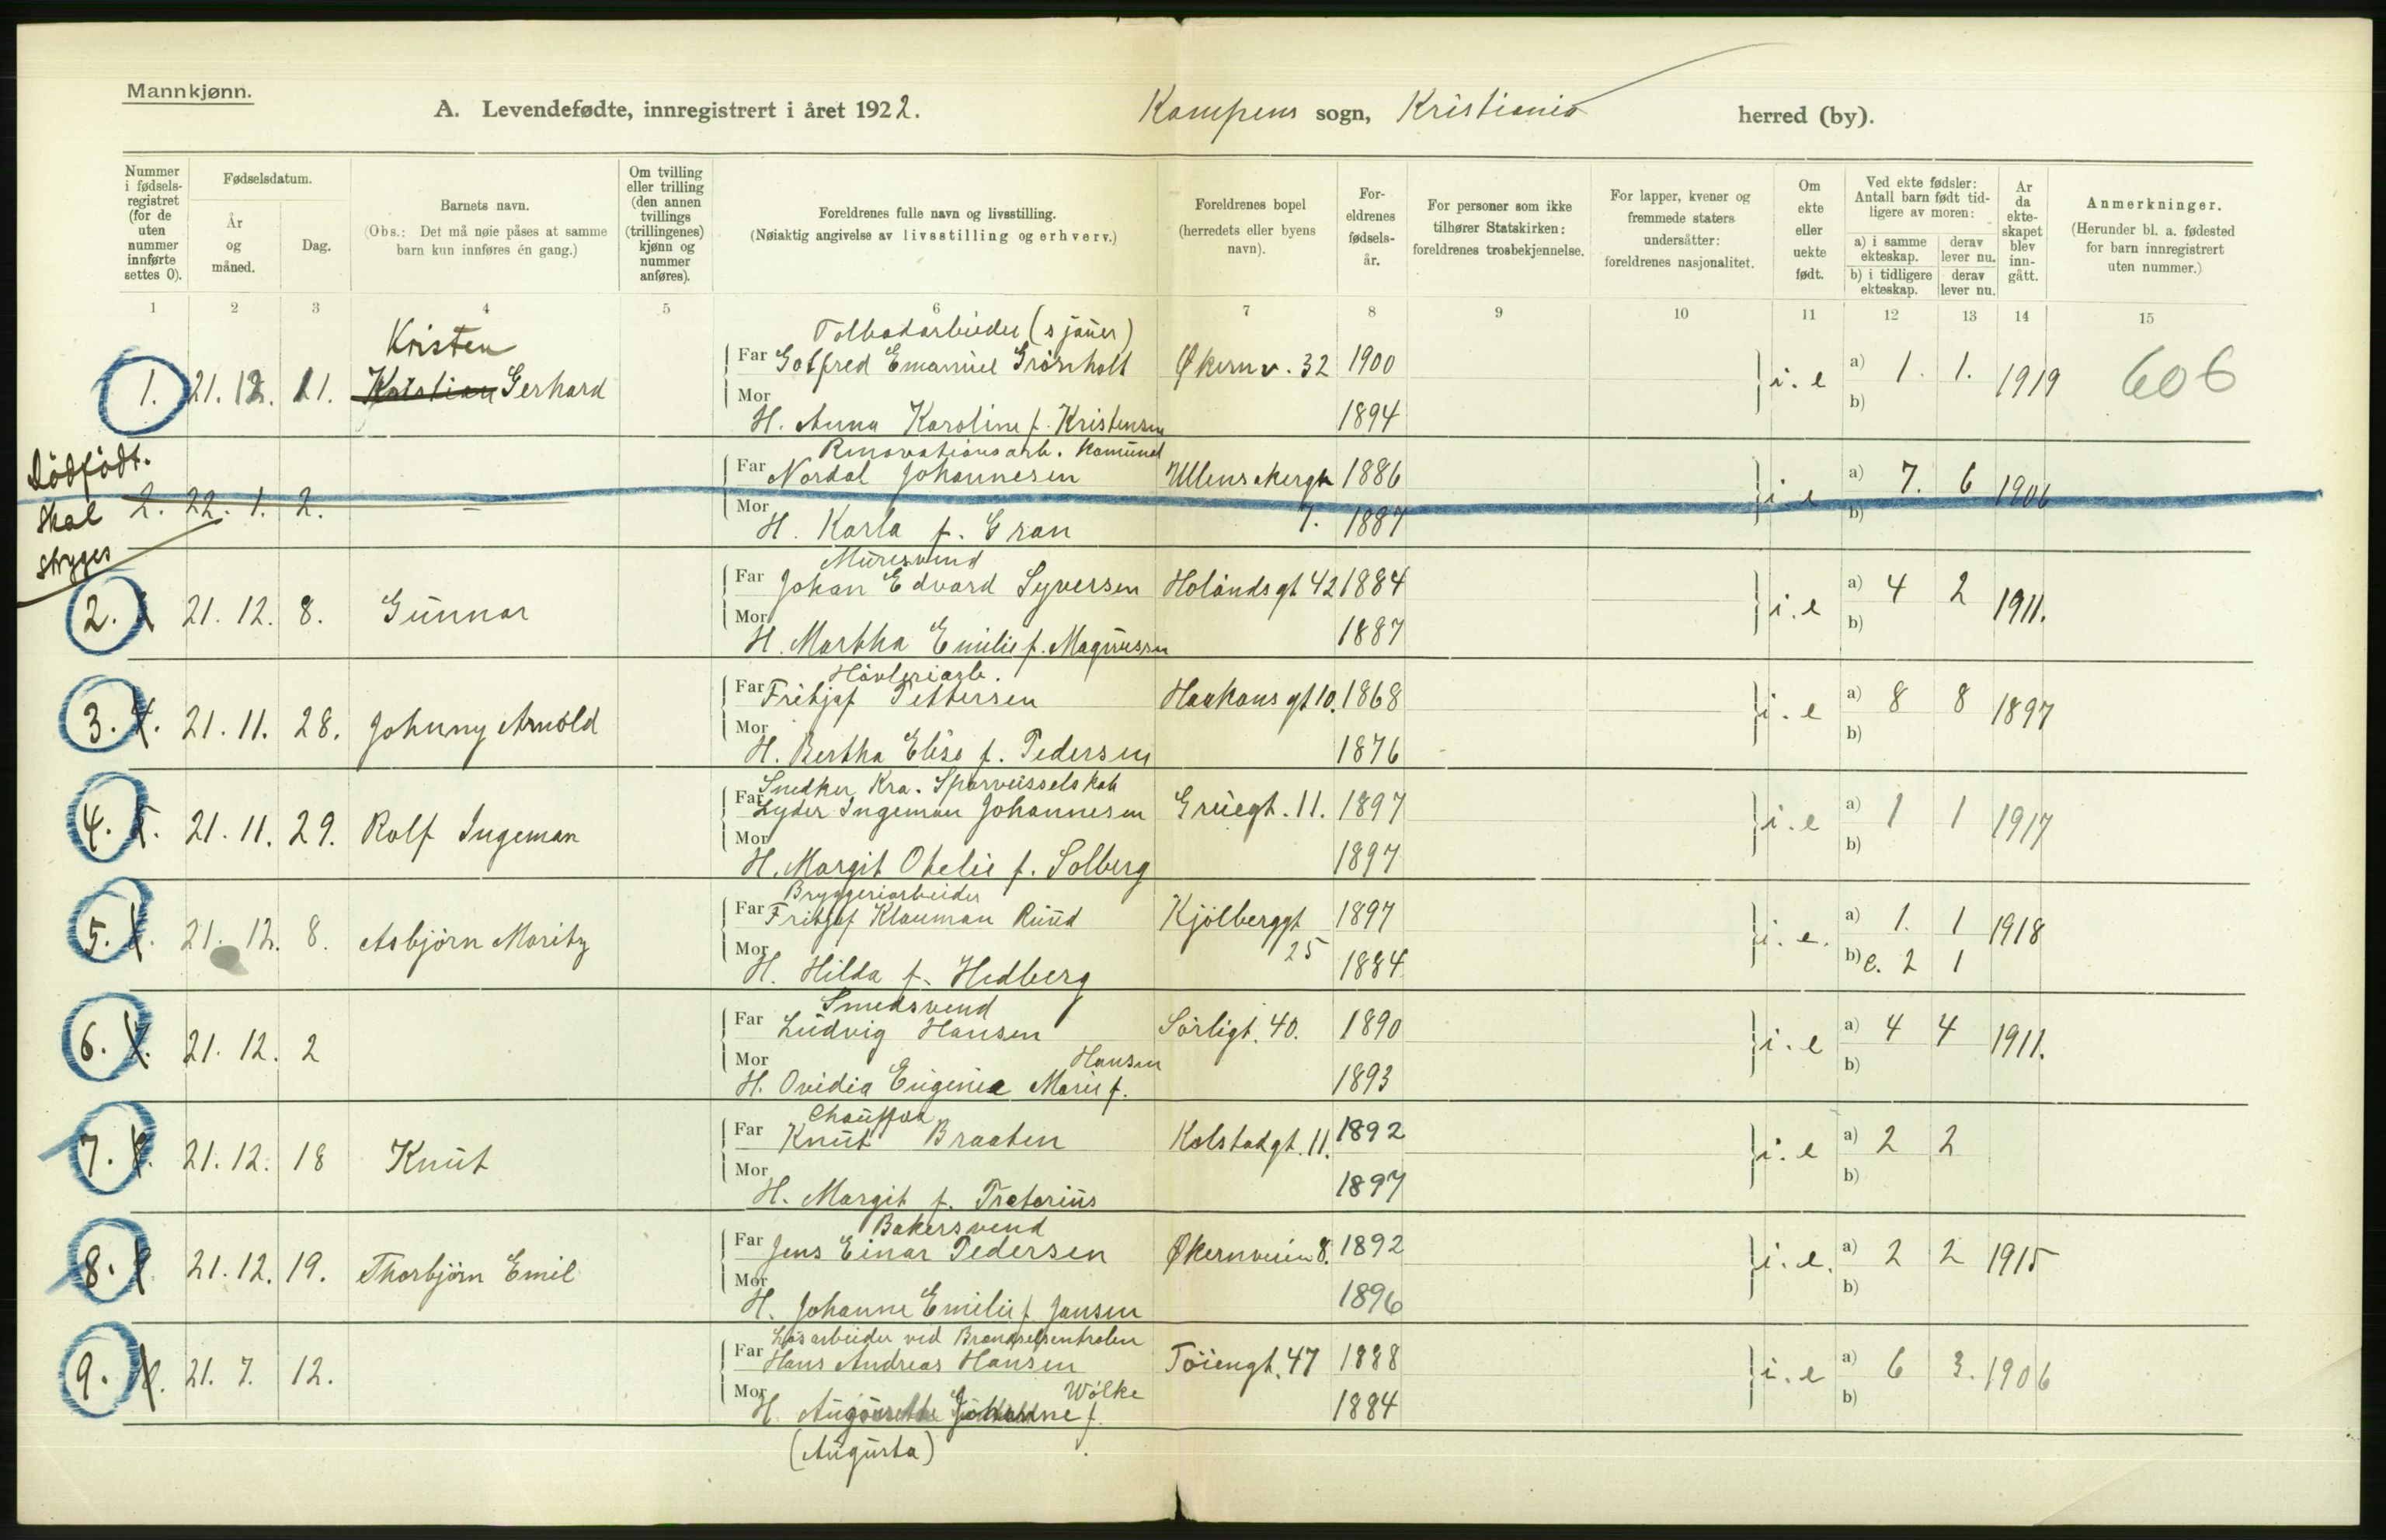 Mannkjønn.
A. Levendefødte, innregistrert i året 1922. Kampens sogn, Kristiania herred (by).
Nummer i fødsels-registret (for de uten nummer innførte settes 0).
Fødselsdatum.
År og måned.
Dag.
Barnets navn.
(Obs.: Det må nøie påses at samme barn kun innføres én gang.)
Om tvilling eller trilling (den annen tvillings (trillingenes) kjønn og nummer anføres).
Foreldrenes fulle navn og livsstilling.
(Nøiaktig angivelse av livsstilling og erhverv.)
Foreldrenes bopel (herredets eller byens navn).
For-eldrenes fødsels-år.
For personer som ikke tilhører Statskirken: foreldrenes trosbekjennelse.
For lapper, kvener og fremmede staters undersåtter: foreldrenes nasjonalitet.
Om ekte eller uekte født.
Ved ekte fødsler: Antall barn født tid-ligere av moren:
a) i samme ekteskap. derav lever nu.
b) i tidligere ekteskap. derav lever nu.
Ar da ekte-skapet blev inn-gått.
Anmerkninger.
(Herunder bl. a. fødested for barn innregistrert uten nummer.)
1 2 3 4 5 6 7 8 9 10 11 12 13 14 15
Kristen Tolbodarbeider (sjauer)
Far Gotfred Emanuel Grönholt Økernv. 32 1900
1. 21. 12. 11. Kristian Gerhard i. e a) 1. 1. 1919 606
Mor b)
H. Anna Karoline f. Kristensen 1894
Dödfödt. Renovationsarb. Komunal
Far Nordal Johannesen Ullensakergt 1886
skal 2. 22. 1. 2. – i e a) 7. 6 1906
Mor b)
H. Karla f. Gran 7. 1887
stryges Muresvend
Far Johan Edvard Syversen Holandsgt 42 1884
2. 21. 12. 8. Gunnar i. e a) 4 2 1911.
Mor b)
H. Martha Emilie f. Magnussen 1887
Hövleriarb.
Far Fritjof Pettersen Haakonsgt 10. 1868
3. 4. 21. 11. 28. Johnny Arnold i. e a) 8 8 1897
Mor b)
H. Bertha Elise f. Pedersen 1876
Snedker Kra. Sporveisselskab
Far Lyder Ingeman Johannesen Gruegt. 11. 1897
4. 5. 21. 11. 29. Rolf Ingeman i. e a) 1 1 1917
Mor b)
H. Margit Otelie f. Solberg 1897
Bryggeriarbeider
Far Fritjof Klauman Ruud Kjölberggt 1897
5. 21. 12. 8. Asbjörn Moritz i. e. a) 1. 1 1918
Mor 25 b) e. 2 1
H. Hilda f. Hedberg 1884
Smedsvend
Far Ludvig Hansen Sörligt. 40. 1890
6. 7. 21. 12. 2 i. e a) 4 4 1911.
Mor Hansen b)
H. Ovidia Eugenie Marie f. 1893
Chauffør
Far Knut Braaten Kolstadgt. 11. 1892
7. 8. 21. 12. 18 Knut i. e a) 2 2
Mor b)
H. Margit f. Pretorius 1897
Bakersvend
Far Jens Einar Pedersen Økernveien 8. 1892
8. 9 21. 12. 19. Thorbjörn Emil i. e. a) 2 2 1915
Mor b)
H. Johanne Emilie f. Jansen 1896
Løsarbeider ved Brændselsentralen
Far Hans Andreas Hansen Töiengt. 47 1888
9. 21. 7. 12. i. e a) 6 3. 1906
Mor Wölke b)
H. f. 1884
(Augusta)